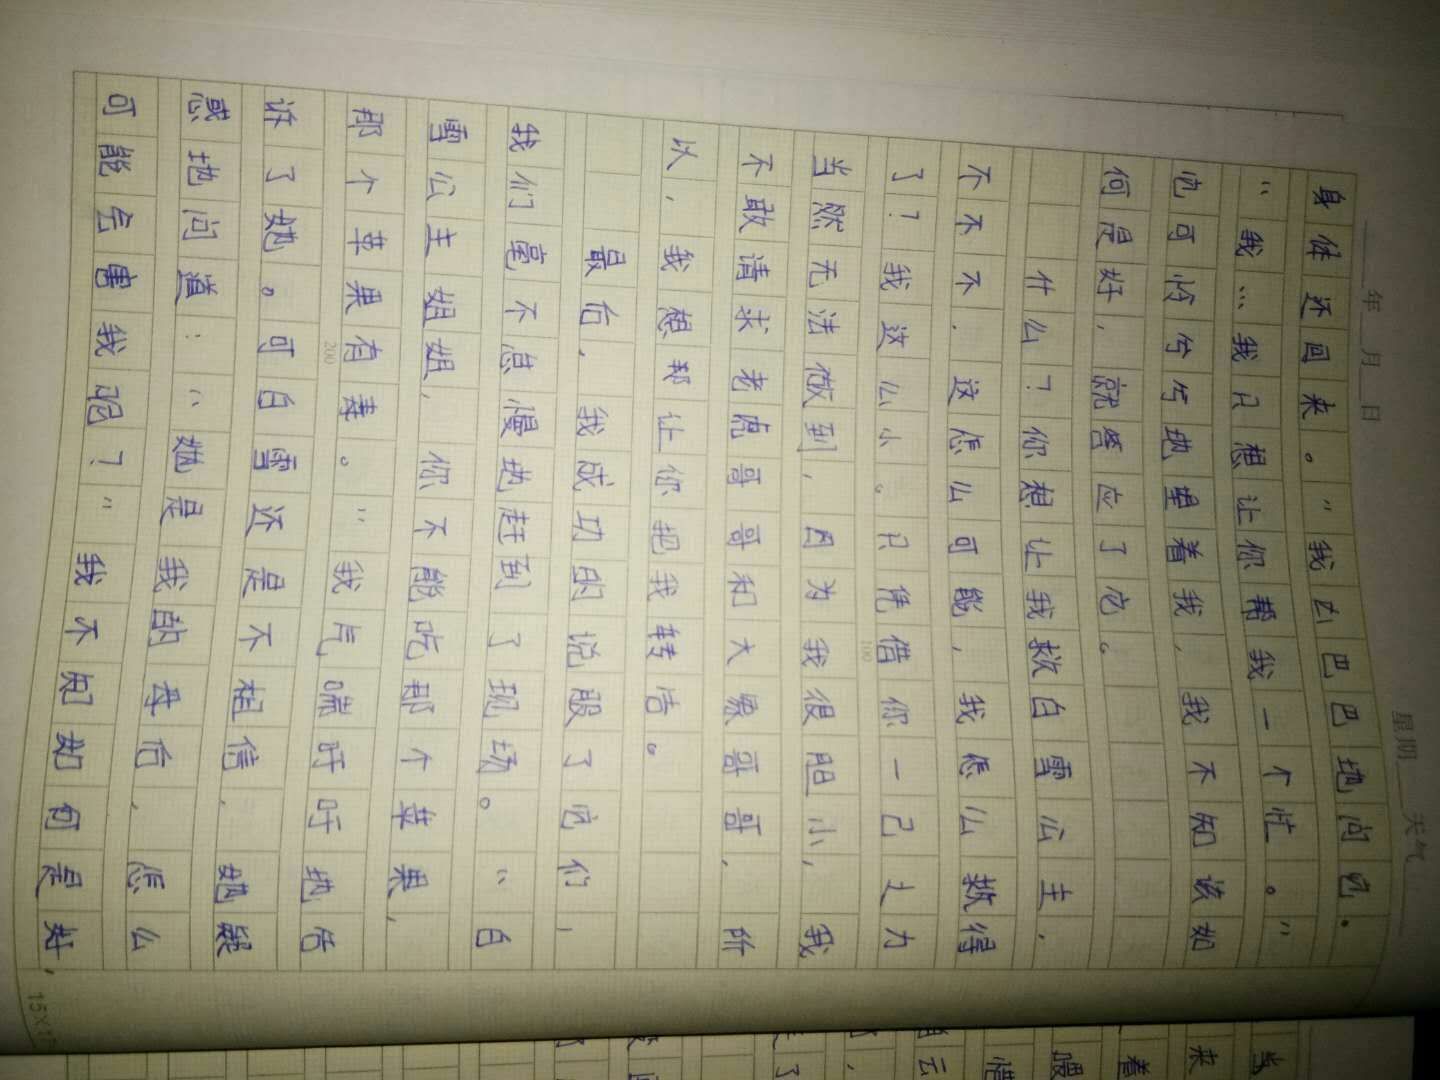 年 月 日 星期 天气
身体还回来。”我大巴巴地问它。
“我…我只想让你帮我一个忙。”
它可怜兮兮地望着我，我不知该如
何是好，就答应了它。
什么？你想让我救白雪公主，
不不不．这怎么可能，我怎么救得
了？我这么小。只凭借你一己之力
当然无法做到，因为我很胆小，我
不敢请求老虎哥哥和大象哥哥，所
以，我想帮让你把我转告。
最后，我成功的说服了它们，
我们毫不怠慢地赶到了现场。“白
雪公主姐姐，你不能吃那个苹果，
那个苹果有毒。”我气喘吁吁地告
诉了她。可白雪还是不相信．她疑
惑地问道：“她是我的母后，怎么
可能会害我呢？”我不知如何是好，
100
200
15×
当
来
着
喂
惜
云
了